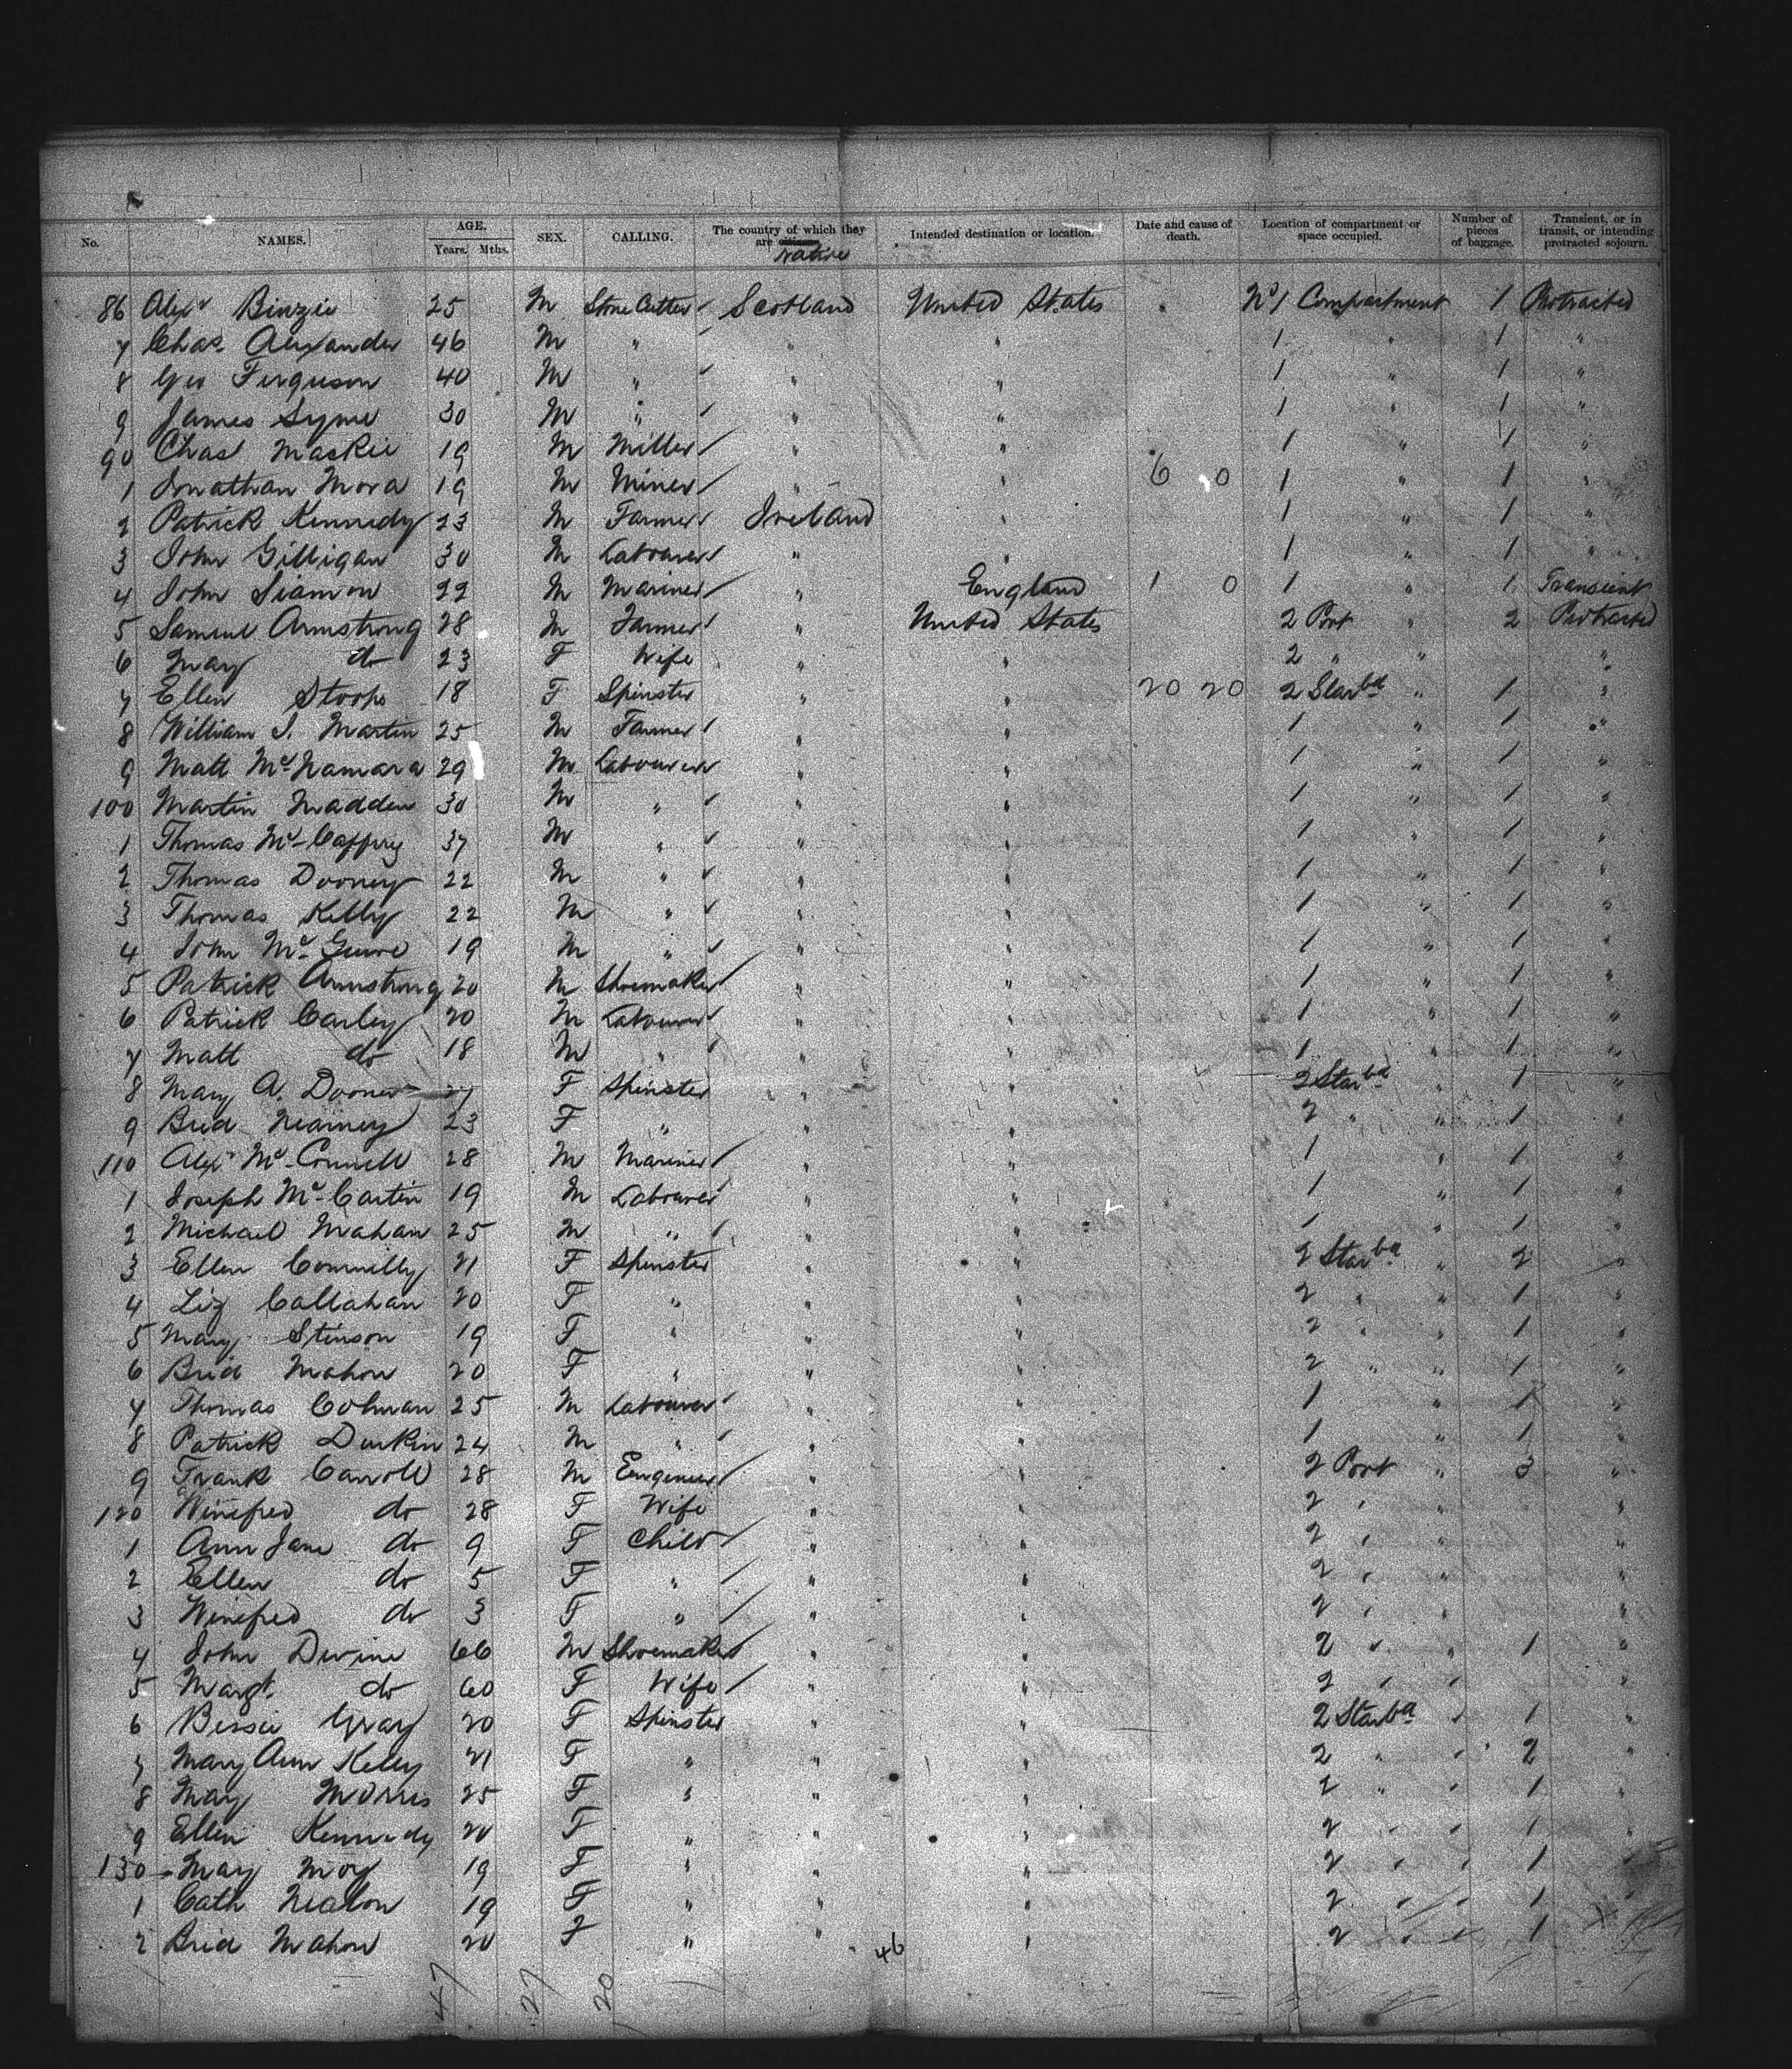 No. NAMES. AGE. Years. Mths. SEX. CALLING. The country of which they are citizens native Intended destination or location. Date and cause of death. Location of compartment or space occupied. Number of pieces of baggage. Transient, or in transit, or intending protracted sojourn.
86 Alexr Binzie 25 M Stone Cutter Scotland United States No 1 Compartment 1 Protracted
7 Chas. Alexander 46 M " " " 1 " 1 "
8 Geo Ferguson 40 M " " " 1 " 1 "
9 James Syme 30 M " " " 1 " 1 "
90 Chas Mackie 19 M Miller " " 1 " 1 "
1 Jonathan Mora 19 M Miner " " 6 0 1 " 1 "
2 Patrick Kennedy 23 M Farmer Ireland " 1 " 1 "
3 John Gilligan 30 M Labourer " " 1 " 1 "
4 John Siamon 22 M Mariner " England 1 0 1 " 1 Transient
5 Samuel Armstrong 28 M Farmer " United States 2 Port " 2 Protracted
6 May do 23 F Wife " " 2 " " "
7 Ellen Stoops 18 F Spinster " " 20 20 2 Starbd " 1 "
8 William J. Martin 25 M Farmer " " 1 " 1 "
9 Matt McNamara 29 M Labourer " " 1 " 1 "
100 Martin Madden 30 M " " " 1 " 1 "
1 Thomas McCaffery 37 M " " " 1 " 1 "
2 Thomas Dooney 22 M " " " 1 " 1 "
3 Thomas Kelly 22 M " " " 1 " 1 "
4 John McGuire 19 M " " " 1 " 1 "
5 Patrick Armstrong 20 M Shoemaker " " 1 " 1 "
6 Patrick Carley 20 M Labourer " " 1 " 1 "
7 Matt do 18 M " " " 1 " 1 "
8 Mary A. Dooner 27 F Spinster " " 2 Starbd " 1 "
9 Brid Nearney 23 F " " " 2 " " 1 "
110 Alexr McConnell 28 M Mariner " " 1 " 1 "
1 Joseph McCartin 19 M Labourer " " 1 " 1 "
2 Michael Mahan 25 M " " " 1 " 1 "
3 Ellen Connilly 21 F Spinster " " 2 Starbd " 2 "
4 Liz Callahan 20 F " " " 2 " " 1 "
5 Mary Stinson 19 F " " " 2 " " 1 "
6 Brid Mahon 20 F " " " 2 " " 1 "
7 Thomas Colman 25 M Labourer " " 1 " 1 "
8 Patrick Durkin 24 M " " " 1 " 1 "
9 Frank Carroll 28 M Engineer " " 2 Port " 3 "
120 Winefred do 28 F Wife " " 2 " " "
1 Ann Jane do 9 F Child " " 2 " " "
2 Ellen do 5 F " " " 2 " " "
3 Winefred do 3 F " " " 2 " " "
4 John Devine 66 M Shoemaker " " 2 " " 1 "
5 Margt. do 60 F Wife " " 2 " " "
6 Bessie Gray 20 F Spinster " " 2 Starbd " 1 "
7 Mary Ann Kelly 21 F " " " 2 " " 2 "
8 May Morris 25 F " " " 2 " " 1 "
9 Ellen Kennedy 20 F " " " 2 " " 1 "
130 May Moy 19 F " " " 2 " " 1 "
1 Cath Nealon 19 F " " " 2 " " 1 "
2 Brid Mahon 20 F " " " 2 " " 1
46
47 27 20